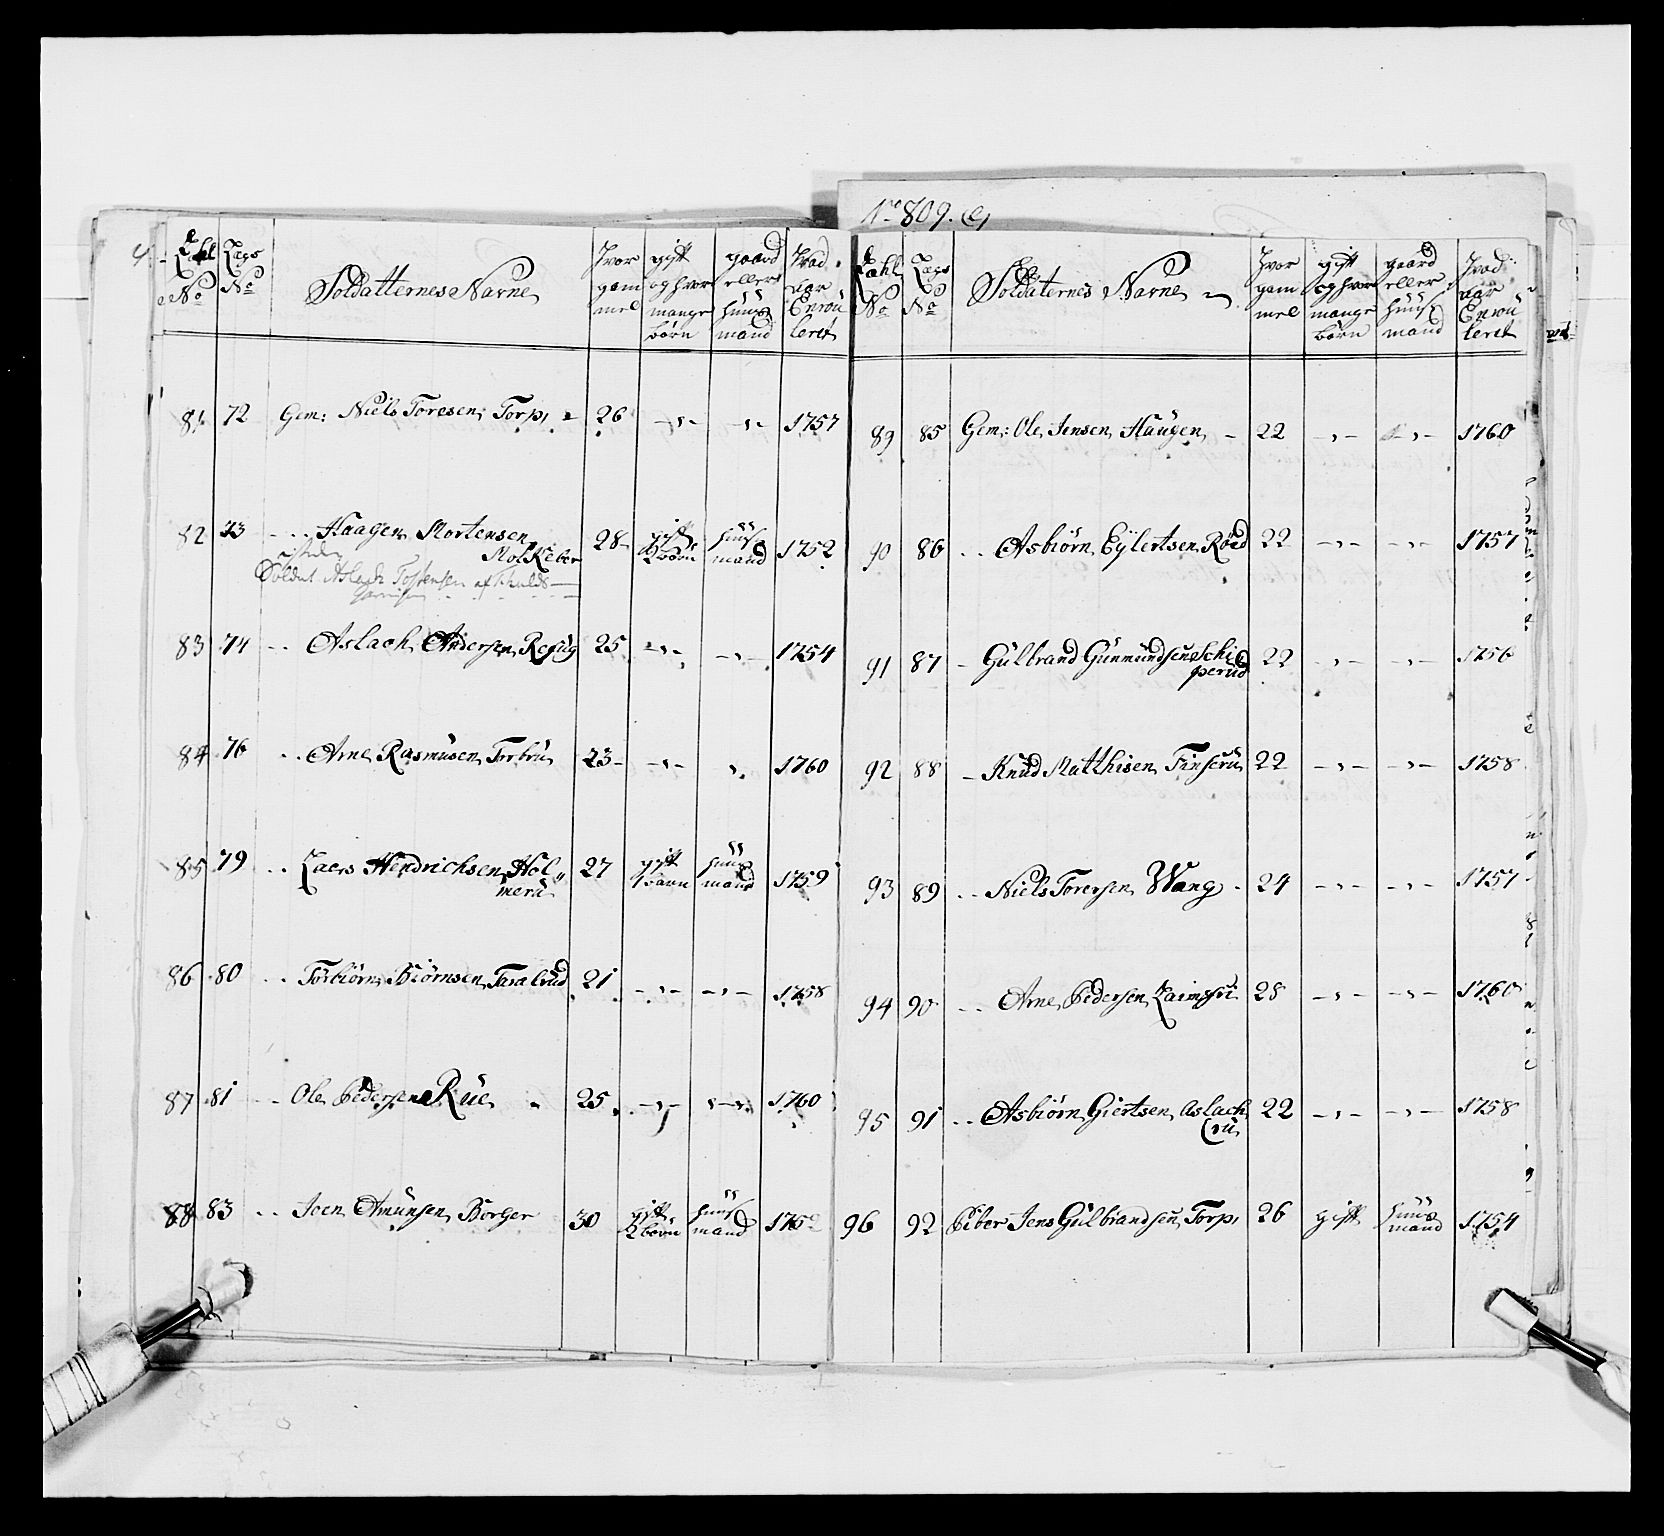 No 809. e,
Tahl No | Lægs No | Soldatternes Navne | Hvor gam mel | gift og hvor mange börn | gaard eller huus mand | Hvad aar Enrou leret
81 | 72 | Gem: Niels Toresen, Torp, | 26 | - " - | - " - | 1757
82 | 73 | - - Haagen Mortensen | 28 | gift 2 börn | huus mand | 1752
Molkeber
Soldat Aslach Tostensen af
83 | 74 | - - Aslach Andersen Refsug | 25 | - " - | - " - | 1754
84 | 76 | - - Arne Rasmusen Torbrü | 23 | - " - | " | 1760
85 | 79 | - - Laers Hendrichsen Hol„ | 27 | gift 1 barn | huus mand | 1759
merü
86 | 80 | - - Torbiörn Biörnsen Taralrud | 21 | - " - | - " - | 1758
87 | 81 | - - Ole Pedersen Rüe | 25 | - " - | - " - | 1760
88 | 83 | - - Joen Amunsen Borger | 30 | gift 2 börn | huus mand | 1752
Tahl No | Lægs No | Soldaternes Navne | Hvor gam mel | gift og hvor mange börn | gaard eller huus mand | Hvad aar Enrou leret
89 | 85 | Gem: Ole Jensen Haugen | 22 | - " - | - " - | 1760
90 | 86 | - - Asbiörn Eylertsen Röed | 22 | - " - | - " - | 1757
91 | 87 | - Gülbrand Günmundsen Schi | 22 | - " - | - " - | 1756
perüd
92 | 88 | - Knud Matthisen Finserü | 22 | - " - | - " - | 1758
93 | 89 | - - Niels Torersen Wang | 24 | - " - | - " - | 1757
94 | 90 | - - Arne Pedersen | 28 | - " - | - " - | 1760
95 | 91 | - - Asbiörn Giertsen Aslach | 22 | - " - | - " - | 1758
rü
96 | 92 | Piber Jens Gülbrandsen Torp, | 26 | gift | huus mand | 1754